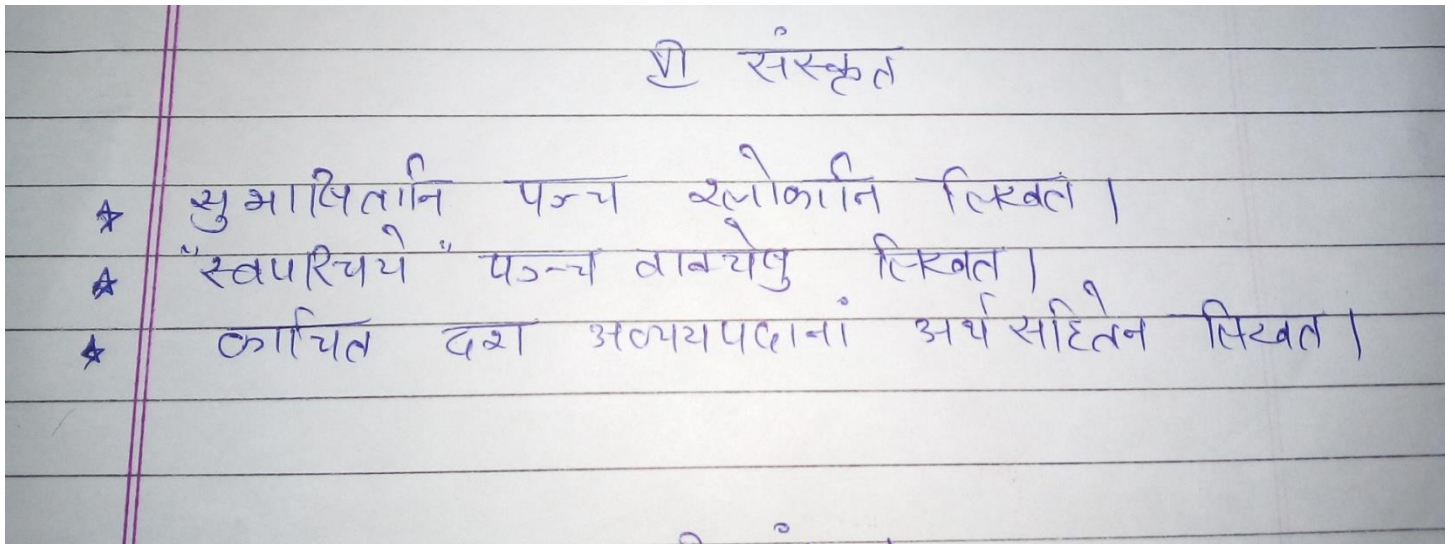 संस्कृत
सुभाषितानि पञ्च श्लोकानि लिखत।
"स्वपरिचये" पञ्च वाक्येषु लिखत।
काचित दश अव्ययपदानां अर्थ सहितेन लिखत।